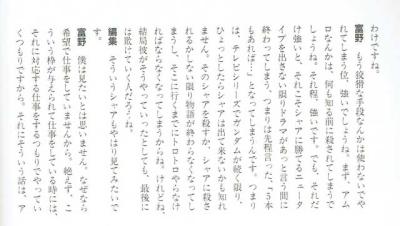 わけですね。
富野　もう狡猾な手段なんかは使わないでや
られてしまう位、強いでしょうね。まず、アム
ロなんかは、何も知る前に殺されてしまうで
しょうね。それ程、強いです。でも、それだ
け強いと、それこそシャアに勝てるニュータ
イプを出さない限りドラマがあっと言う間に
終わってしまう、つまりは先程言った、「5本
もあれば…」となってしまうんです。つまり
は、テレビシリーズでガンダムが続く限り、
ひょっとしたらシャアは出て来ないかも知れ
ません。そのシャアを殺すか、シャアに殺さ
れるかしない限り物語が終わらなくなってし
まうし、そこに行くまでにトロトロやらなけ
ればならなくなってしまうからね。けれどね、
結局彼がそうやっていったとしても、最後に
は敗けていく人だろうね。
編集　そういうシャアもやはり見てみたいで
す。
富野　僕は見たいとは思いません。なぜなら
希望で仕事をしていませんから。絶えず、こ
ういう枠が与えられて仕事をしている時には、
それに対応する仕事をするつもりでやってい
くつもりですから。それにそういう話は、ア